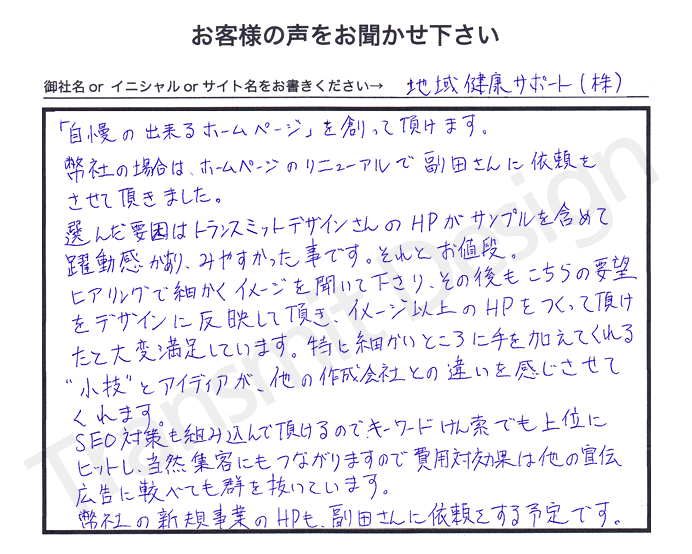 お客様の声をお聞かせ下さい
御社名 or イニシャル or サイト名をお書きください→ 地域健康サポート(株)
「自慢の出来るホームページ」を創って頂けます。
弊社の場合は、ホームページのリニューアルで副田さんに依頼を
させて頂きました。
選んだ要因はトランスミットデザインさんのHPがサンプルを含めて
躍動感があり、みやすかった事です。それとお値段。
ヒアリングで細かくイメージを聞いて下さり、その後もこちらの要望
をデザインに反映して頂き、イメージ以上のHPをつくって頂け
たと大変満足しています。特に細かいところに手を加えてくれる
"小技"とアイディアが、他の作成会社との違いを感じさせて
くれます。
SEO対策も組み込んで頂けるので、キーワードけん索でも上位に
ヒットし、当然集客にもつながりますので費用対効果は他の宣伝
広告に較べても群を抜いています。
弊社の新規事業のHPも、副田さんに依頼をする予定です。
Transmit Design